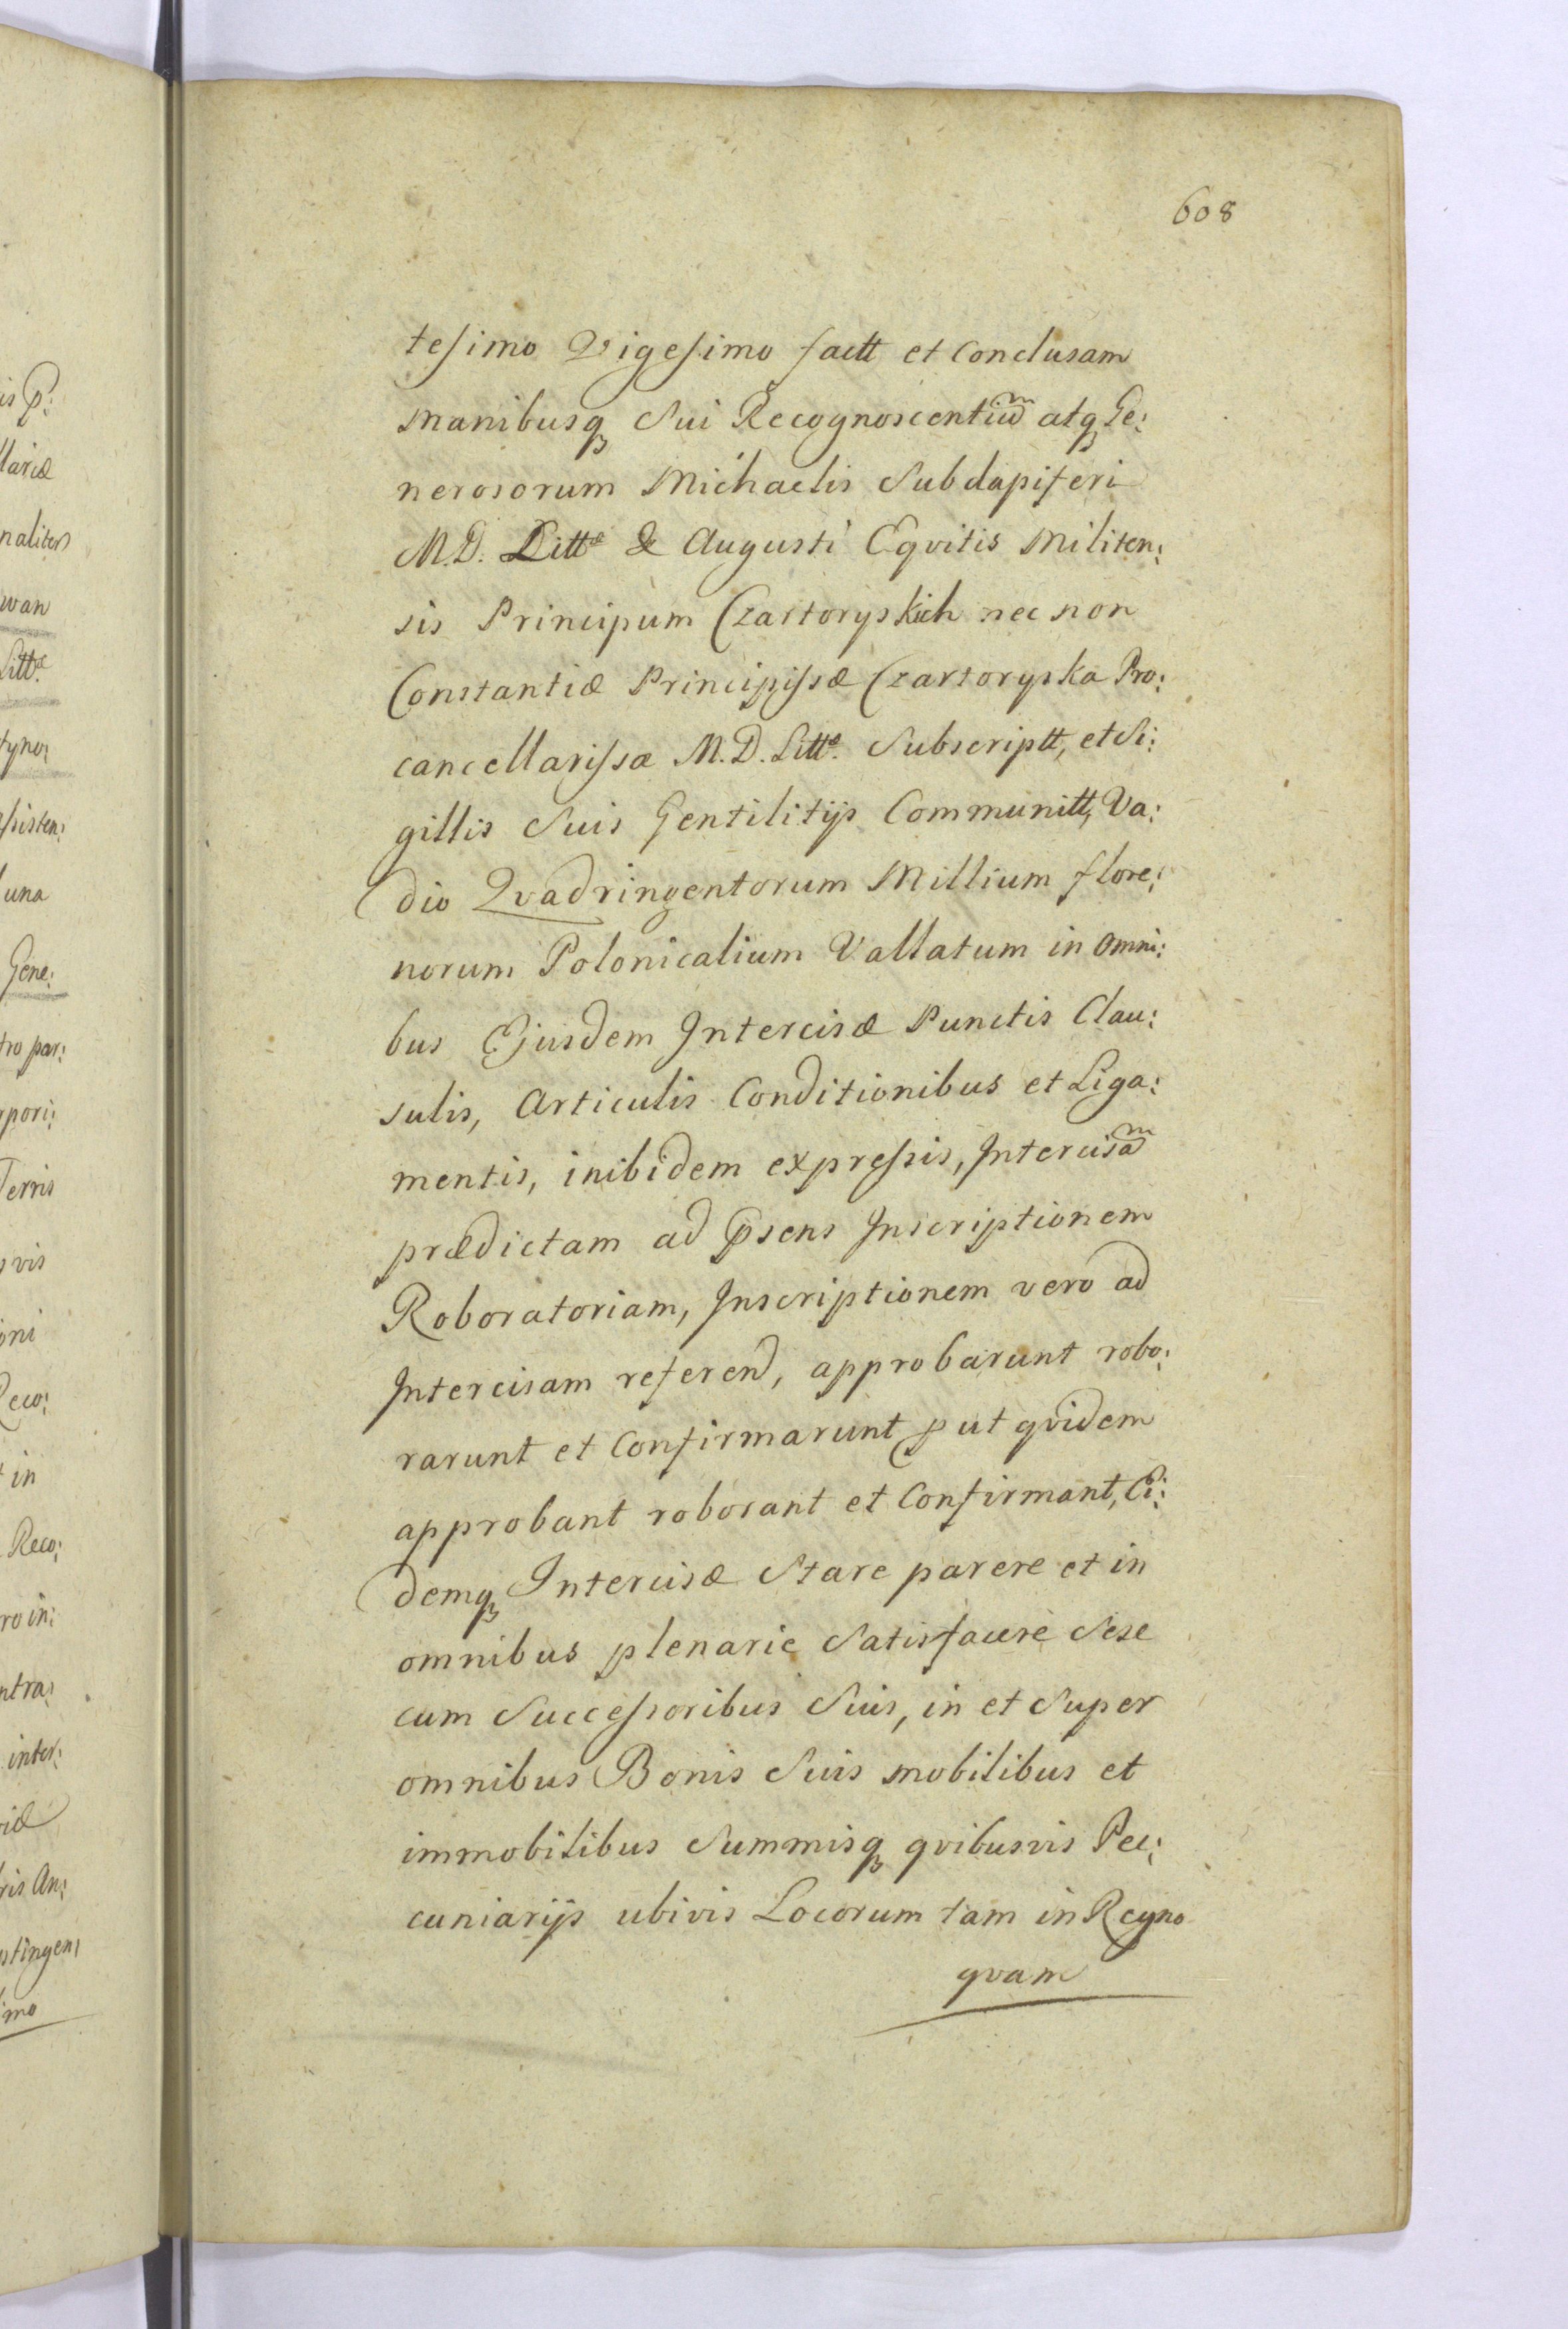 608
tesimo Vigesimo factt et Conclusam
manibusq Sui Recognoscentiũ atq Ge:
nerosorum Michaelis Subdapiferi
M.D. Littæ & Augusti Eqvitis Militen:
sis Principum Czartoryskich nec non
Constantiæ Principissæ Czartoryska Pro:
cancellarissæ M.D. Littæ. Subscriptt, et Si:
gillis Suis Gentilitijs Communitt, Va:
dio Qvadringentorum Millium flore:
norum Polonicalium Vallatum in omni:
bus Ejusdem Intercisæ Punctis Clau:
sulis, Articulis Conditionibus et Liga:
mentis, inibidem expressis, Intercisã
prædictam ad pñsens Inscriptionem
Roboratoriam, Inscriptionem vero ad
Intercisam referend, approbarunt robo:
rarunt et Confirmarunt put qvidem
approbant roborant et Confirmant, Ei:
demq Intercisæ Stare parere et in
omnibus plenarie Satisfacere Sese
cum Successoribus Suis, in et Super
omnibus Bonis Suis mobilibus et
immobilibus Summisq qvibusvis Pec:
cuniarijs ubivis Locorum tam in Regno
qvam
is p:
llariæ
naliter
wan
Littæ
tyno:
ssisten:
una
Gene:
tro par:
rpori:
Terris
svis
oni
Reco:
t in
Reco:
ro in:
ntra:
inter:
viæ
ris An:
stingen:
imo